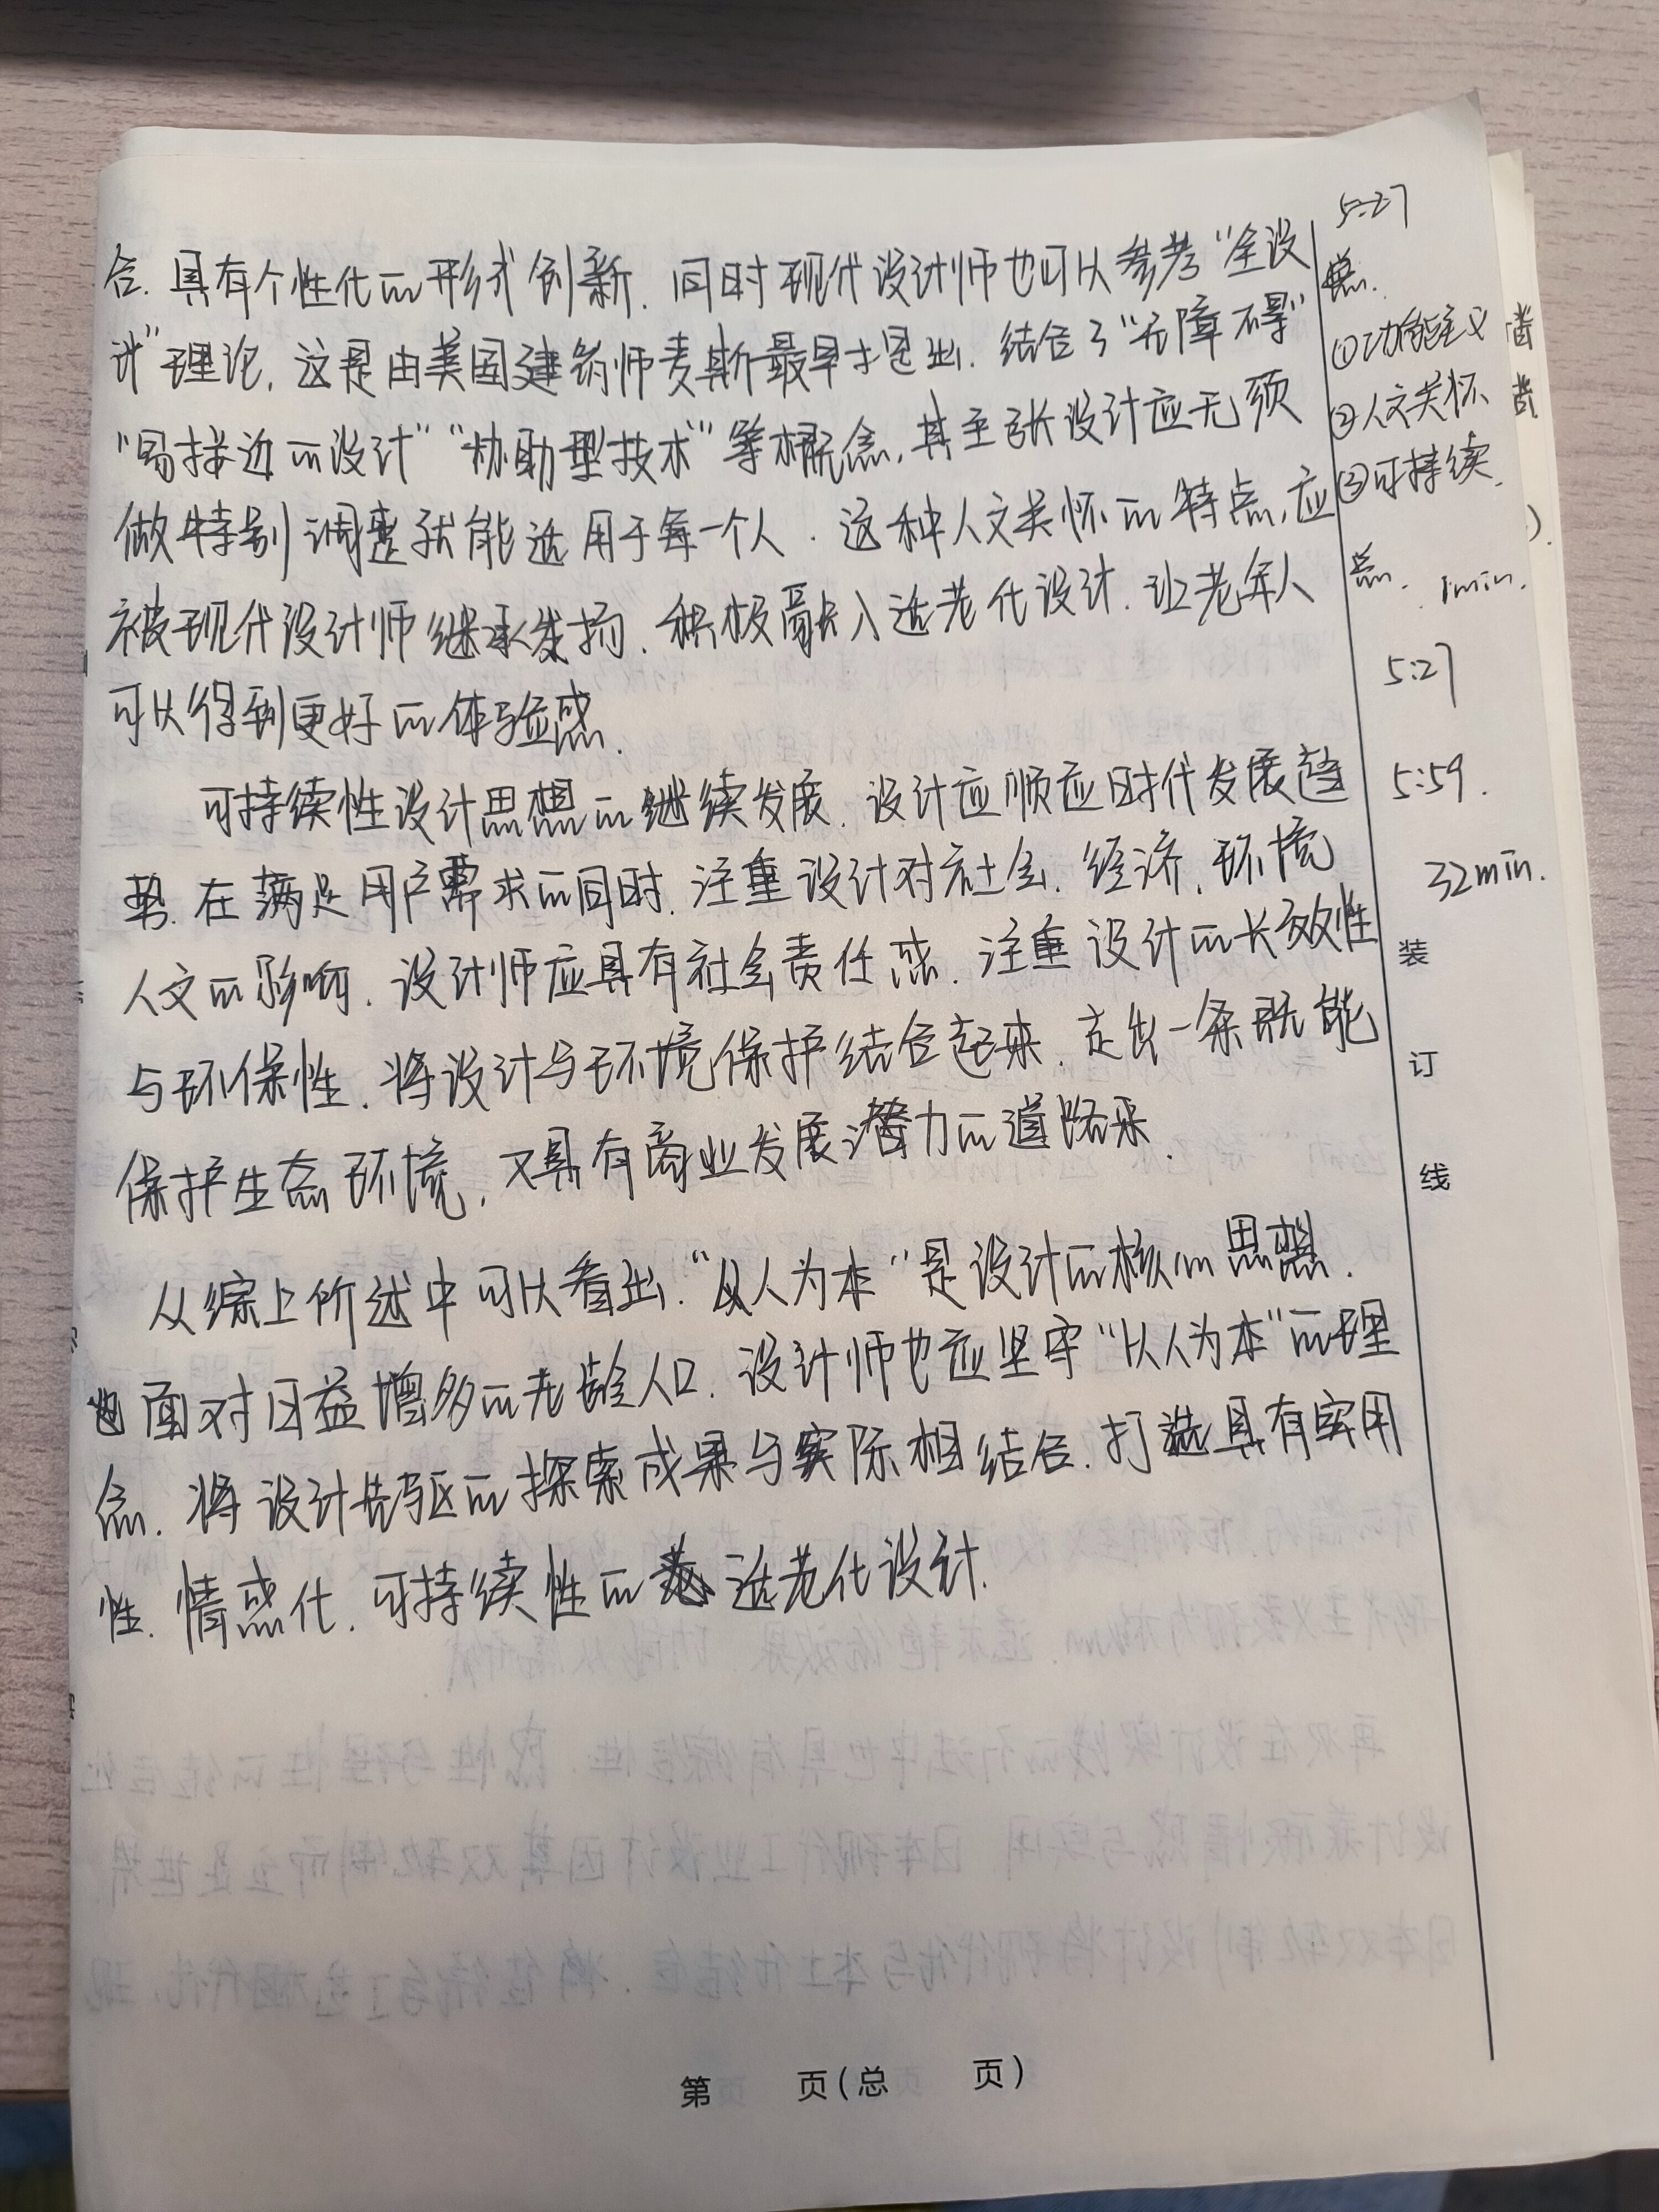 合.具有个性化的形式创新.同时现代设计师也可以参考“全设
计”理论,这是由美国建筑师麦斯最早提出.结合了“无障碍”
“易接近的设计”“协助型技术”等概念,其主张设计应无须
做特别调整就能适用于每一个人.这种人文关怀的特点,应
被现代设计师继承发扬.积极融入适老化设计.让老年人
可以得到更好的体验感.
可持续性设计思想的继续发展.设计应顺应时代发展趋
势.在满足用户需求的同时.注重设计对社会.经济.环境
人文的影响.设计师应具有社会责任感.注重设计的长效性
与环保性.将设计与环境保护结合起来.走出一条既能
保护生态环境,又具有商业发展潜力的道路来.
从综上所述中可以看出.“以人为本”是设计的核心思想.
面对日益增多的老龄人口.设计师也应坚守“以人为本”的理
念.将设计先驱的探索成果与实际相结合.打造具有实用
性.情感化.可持续性的适老化设计.
5:27
①功能主义
②人文关怀
③可持续.
1min.
5:27
5:59.
32min.
装
订
线
第 页(总 页)